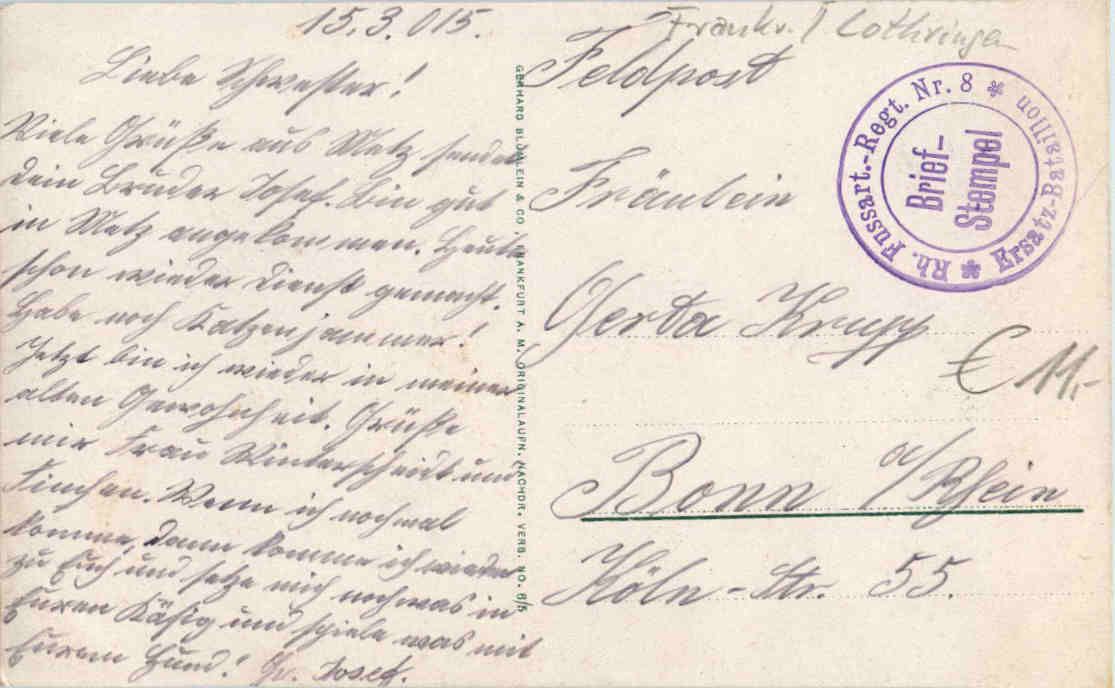 15.3.015.
Liebe Schwester!
Viele Grüße aus Metz sendet
dein Bruder Josef. Bin gut
in Metz angekommen. Heute
schon wieder Dienst gemacht.
Habe noch Katzenjammer!
Jetzt bin ich wieder in meiner
alten Gewohnheit. Grüße
mir Frau Winterscheidt und
Finchen. Wenn ich nochmal
komme, dann komme ich wieder
zu Euch und setze mich noch was in
Euren Käfig und spiele was mit
Eurem Hund! Gr. Josef.
GERHARD BLÜMLEIN & CO. FRANKFURT A. M. ORIGINALAUFN. NACHDR. VERB. NO. 6/5
Frankr. / Lothringen
Feldpost
Rh. Fussart.-Regt. Nr. 8
Ersatz-Bataillon
Brief-
Stempel
Fräulein
Gerda Krupp
€ 11.-
Bonn a/Rhein
Köln-Str. 55.